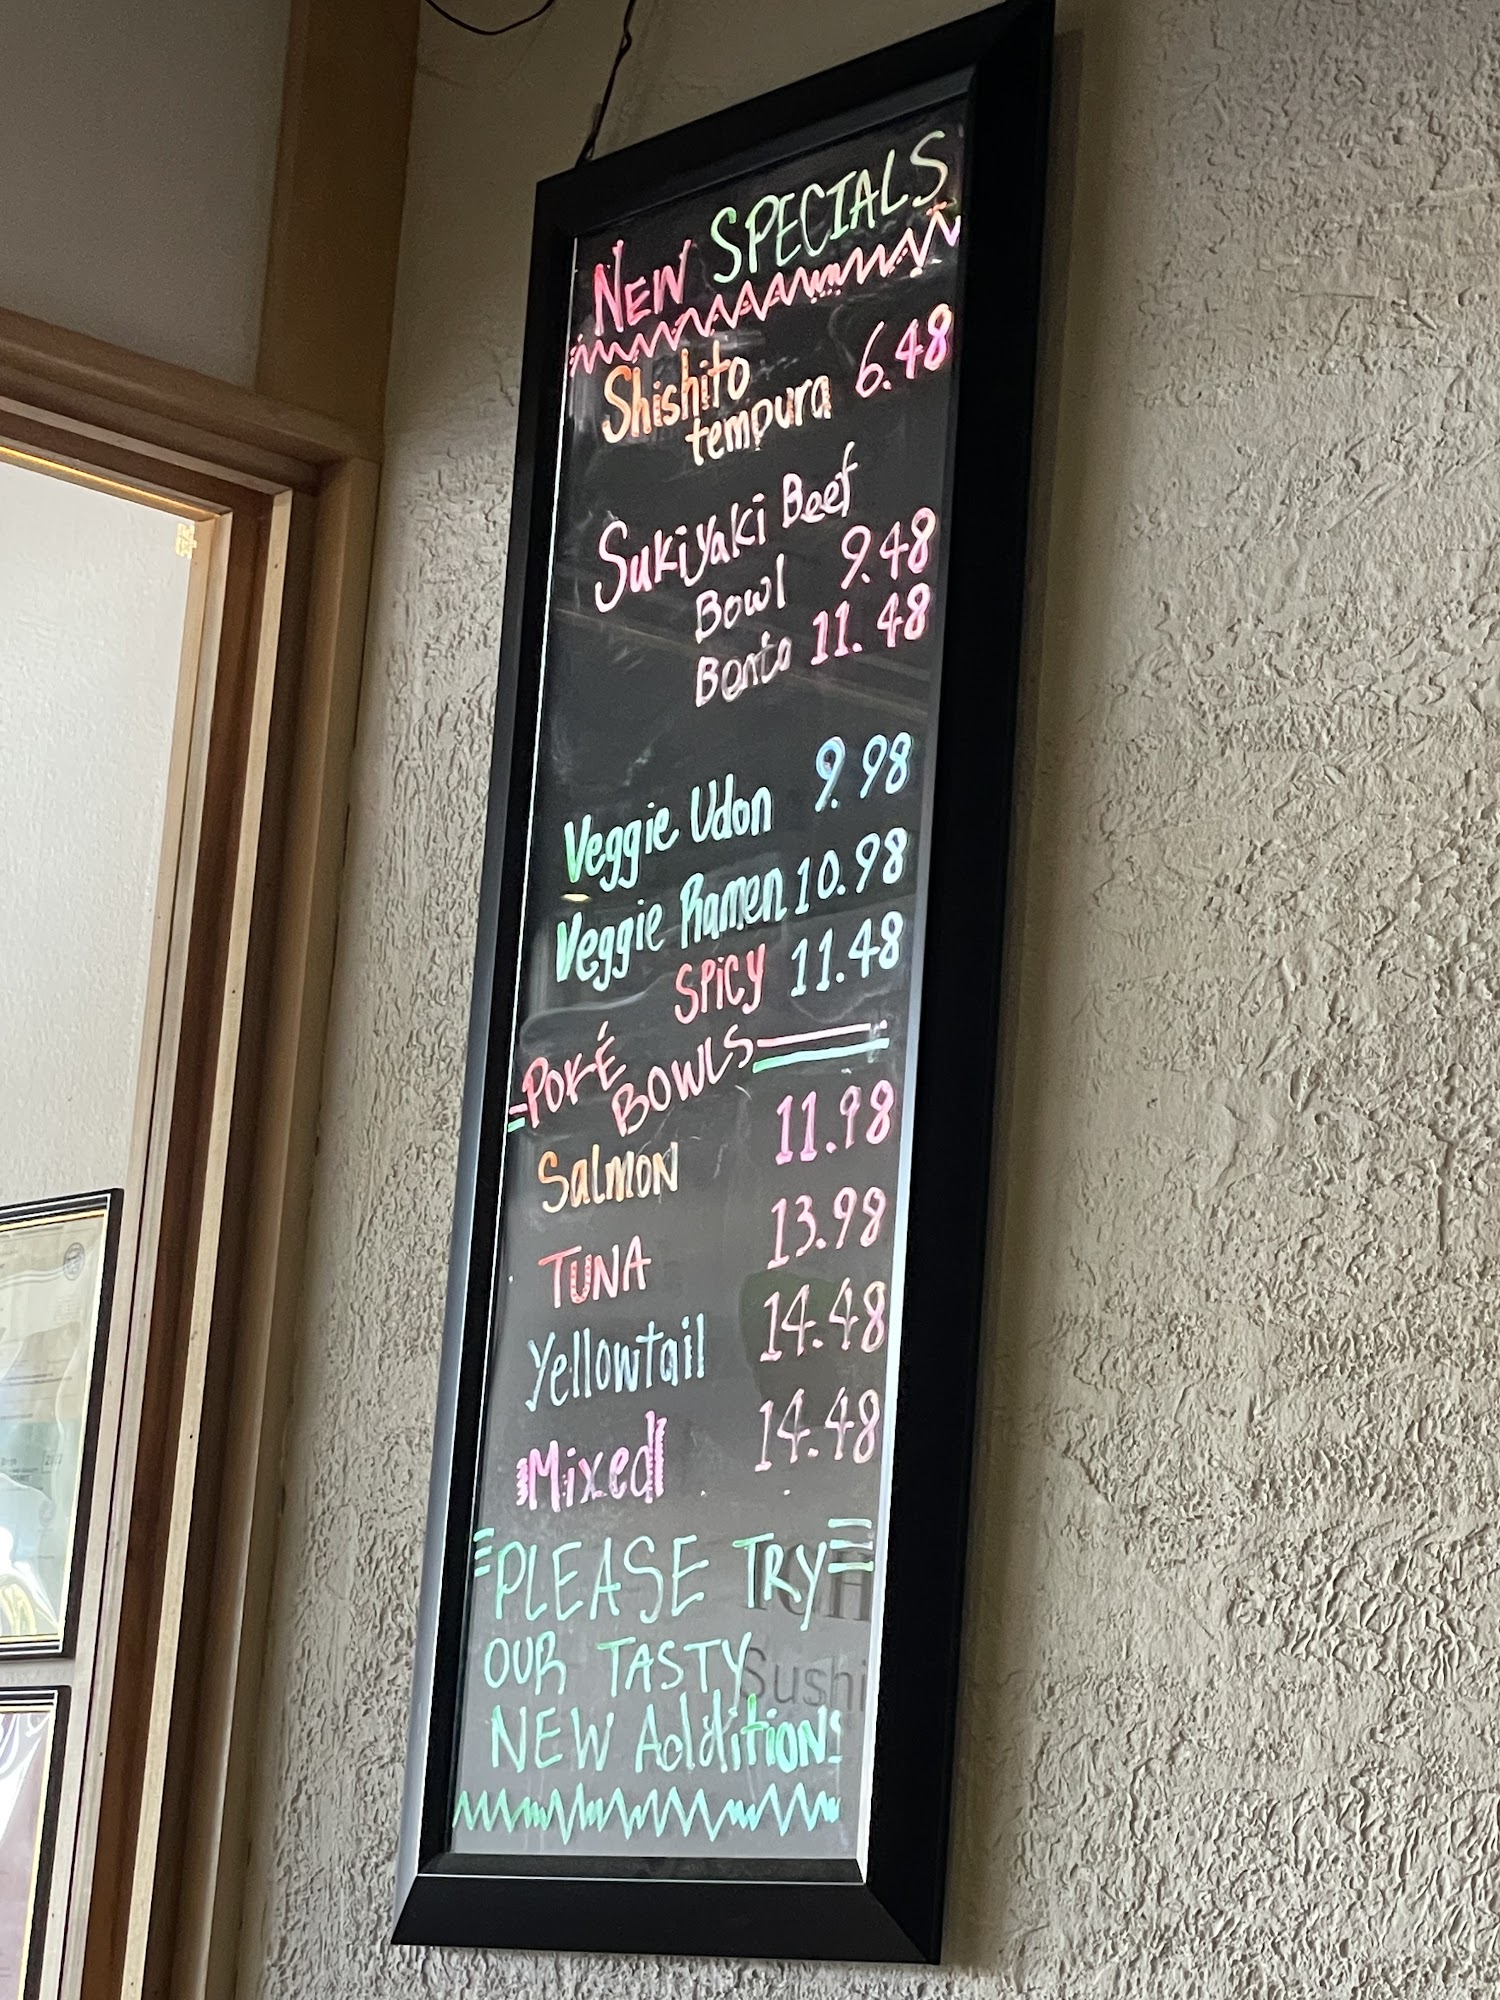 NEW SPECIALS
Shishito
tempura 6.48
Sukiyaki Beef
Bowl 9.48
Bento 11.48
Veggie Udon 9.98
Veggie Ramen 10.98
SPICY 11.48
POKÉ
BOWLS
Salmon 11.98
TUNA 13.98
Yellowtail 14.48
Mixed 14.48
PLEASE TRY
OUR TASTY
NEW Additions
Sushi